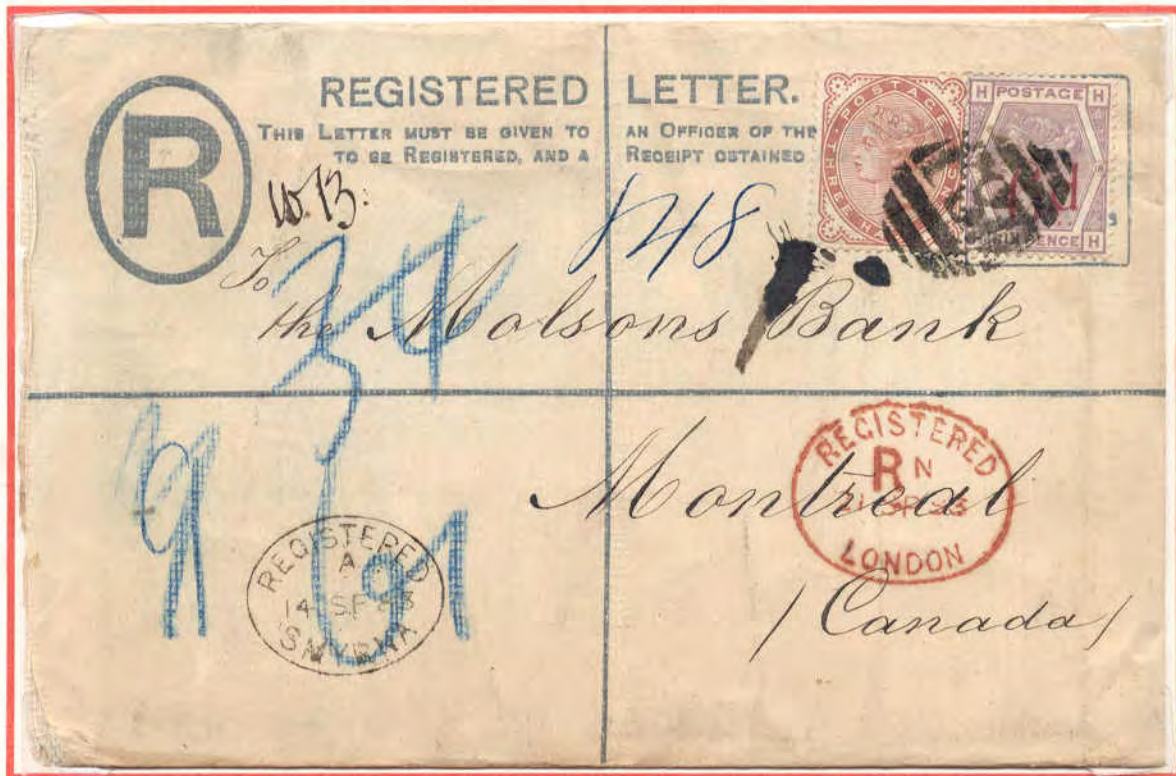 REGISTERED LETTER.
THIS LETTER MUST BE GIVEN TO AN OFFICER OF THE
TO BE REGISTERED, AND A RECEIPT OBTAINED
R
POSTAGE
THREE HA
H POSTAGE H
PENCE H
W.B:
148
34
To
the Molsons Bank
Montreal
(Canada)
REGISTERED
R N
LONDON
REGISTERED
A
14 SP 83
SMYRNA